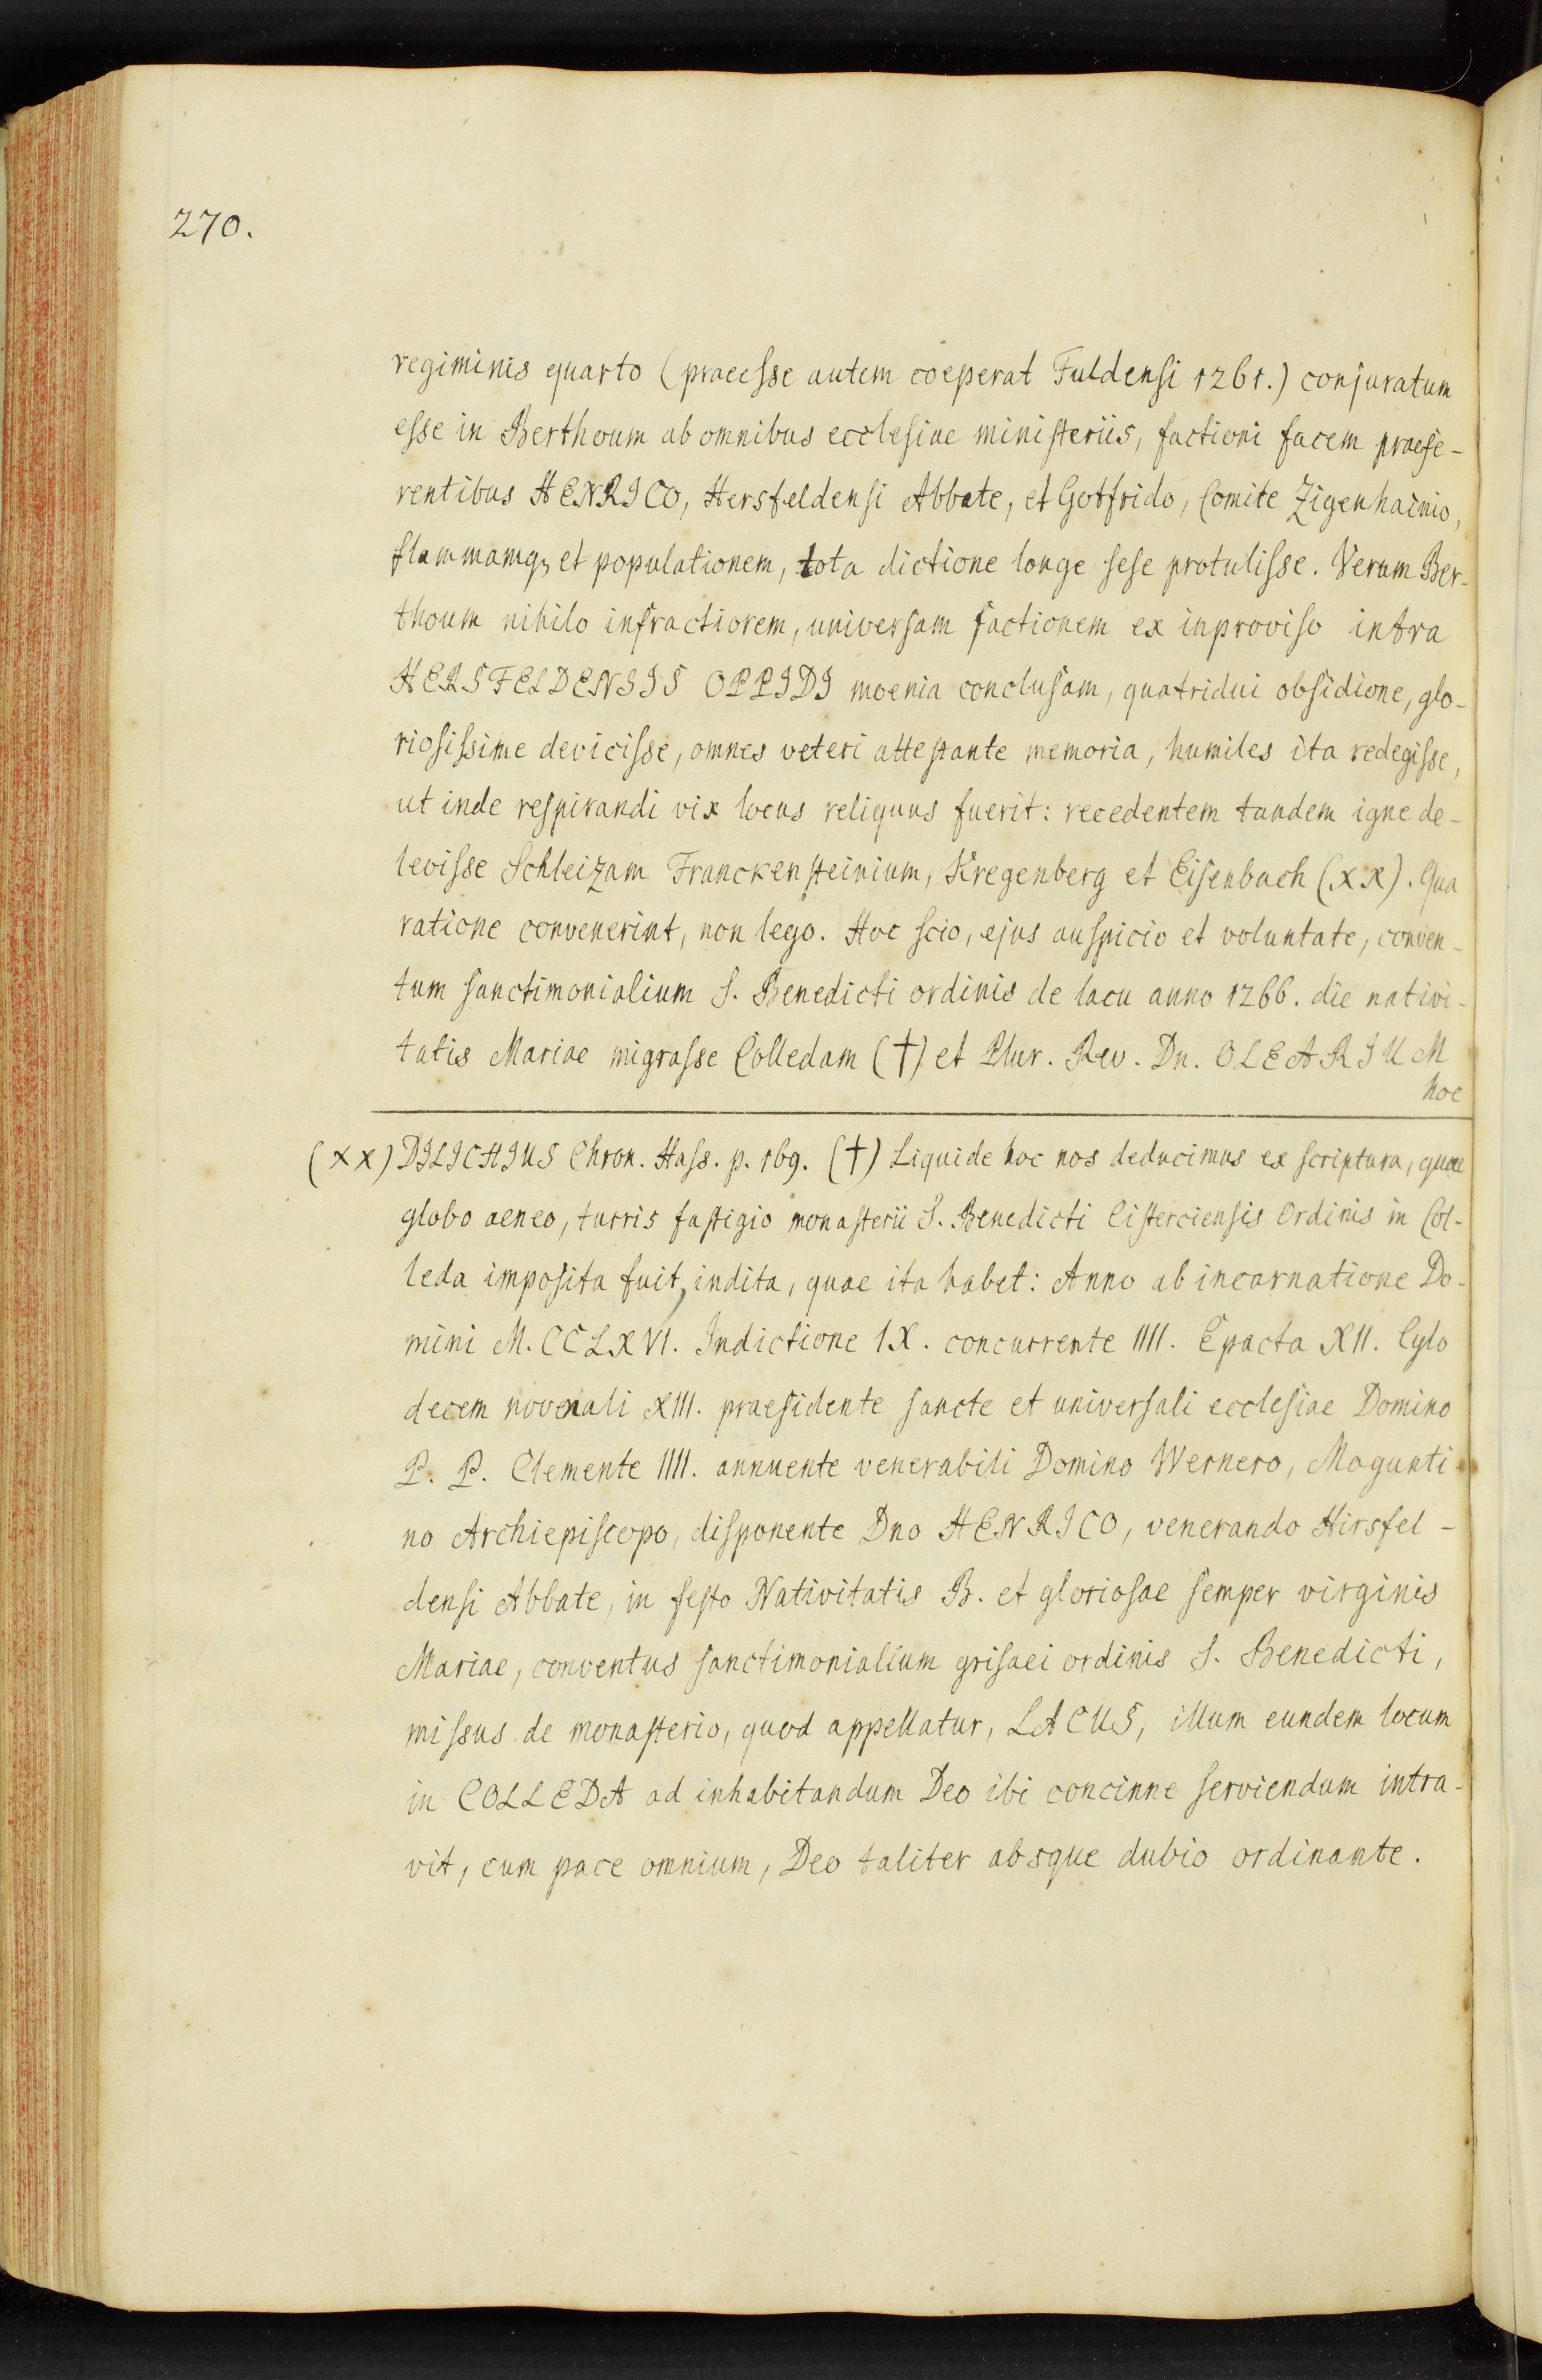 270.
regiminis quarto (praeesse autem coeperat Fuldensi 1261.) conjuratum
esse in Berthoum ab omnibus ecclesiae ministeriis, factioni facem praefe-
rentibus HENRICO, Hersfeldensi Abbate, et Gotfrido, Comite Zigenhainio,
flammamq; et populationem, tota dictione longe sese protulisse. Verum Ber-
thoum nihilo infractiorem, universam factionem ex inproviso intra
HERSFELDENSIS OPPIDI moenia conclusam, quatridui obsidione, glo-
riosissime devicisse, omnes veteri attestante memoria, humiles ita redegisse,
ut inde respirandi vix locus reliquus fuerit: recedentem tandem igne de-
levisse Schleizam Franckensteinium, Kregenberg et Eisenbach (xx). Qua
ratione convenerint, non lego. Hoc scio, ejus auspicio et voluntate, conven-
tum sanctimonialium S. Benedicti ordinis de lacu anno 1266. die nativi-
tatis Mariae migrasse Colledam (†) et Plur. Rev. Dn. OLEARIUM
hoc
(xx) DILICHIUS Chron. Hass. p. 169. (†) Liquide hoc nos deducimus ex scriptura, quae
globo aeneo, turris fastigio monasterii S. Benedicti Cisterciensis Ordinis in Col-
leda imposita fuit, indita, quae ita habet: Anno ab incarnatione Do-
mini M. CCLXVI. Indictione IX. concurrente IIII. Epacta XII. Cylo
decem novenali XIII. praesidente sancte et universali ecclesiae Domino
P. P. Clemente IIII. annuente venerabili Domino Wernero, Magunti
no Archiepiscopo, disponente Dno HENRICO, venerando Hirsfel-
densi Abbate, in festo Nativitatis B. et gloriosae semper virginis
Mariae, conventus sanctimonialium grisaei ordinis S. Benedicti,
missus de monasterio, quod appellatur, LACUS, illum eundem locum
in COLLEDA ad inhabitandum Deo ibi concinne serviendum intra-
vit, cum pace omnium, Deo taliter absque dubio ordinante.